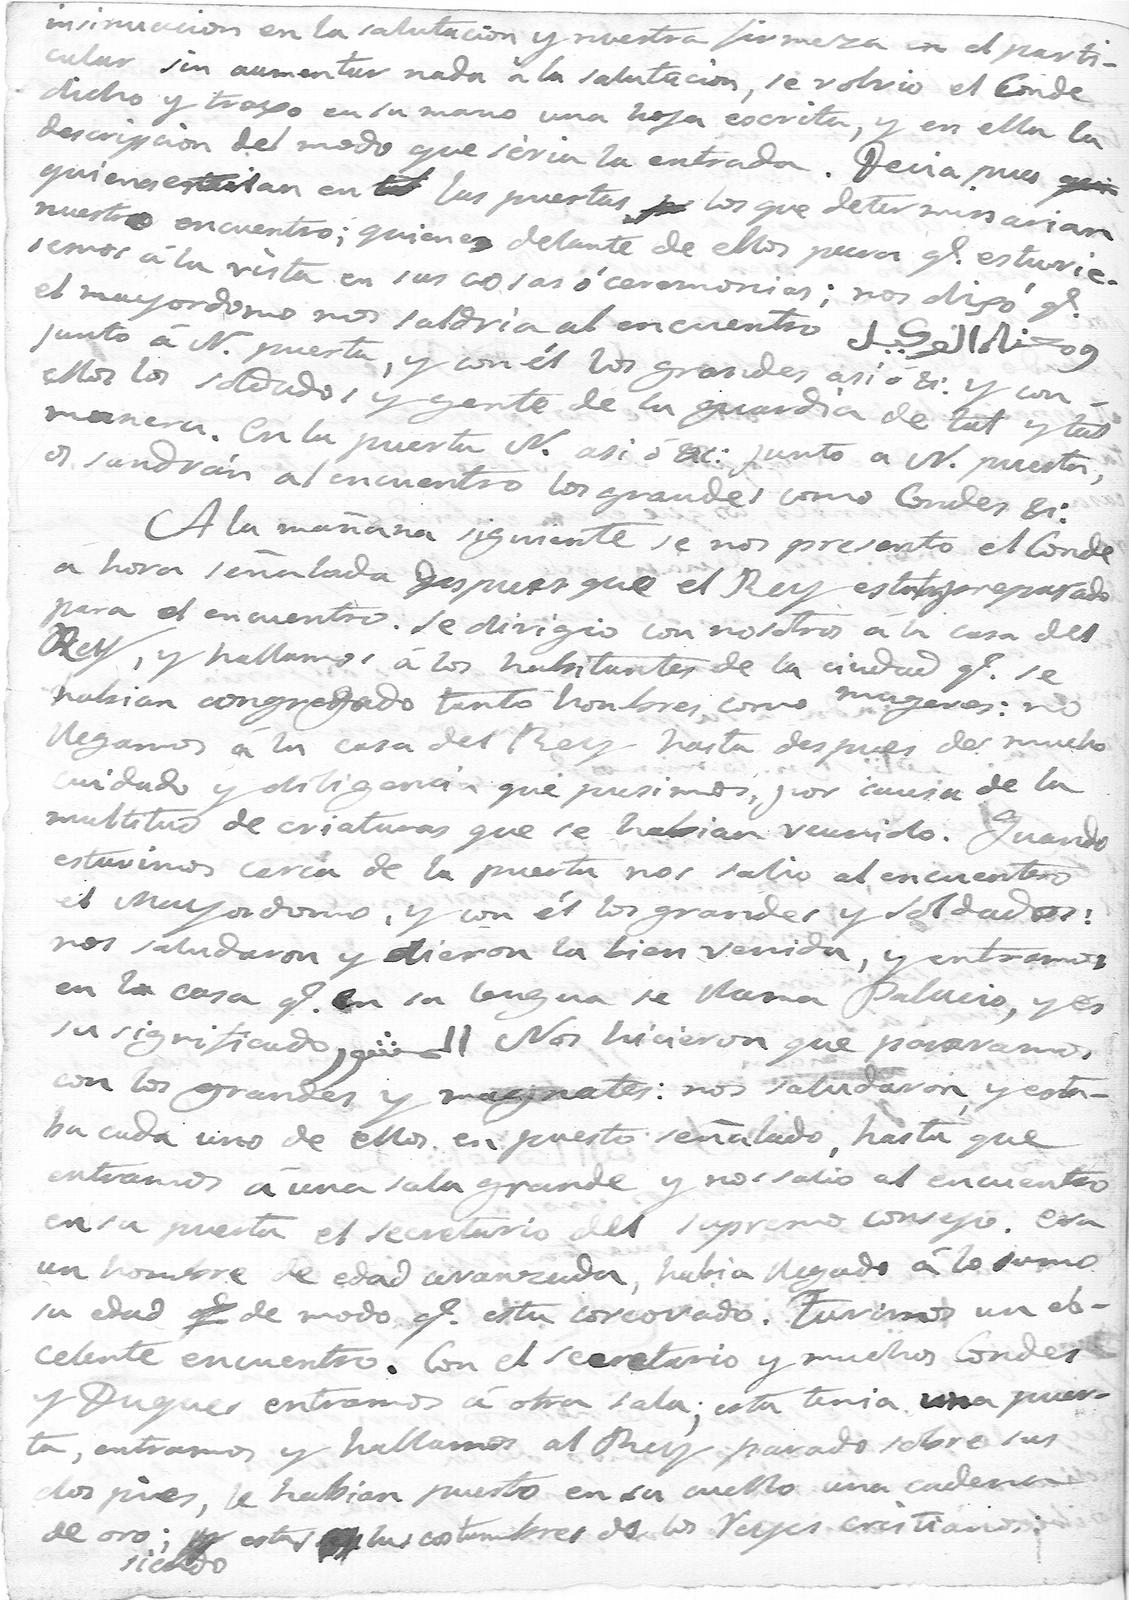 insinuacion en la salutacion y nuestra firmeza en el parti-
cular sin aumentar nada à la salutacion, se volvio el Conde
dicho y traxo en su mano una hoja escrita, y en ella la
descripcion del modo que séria la entrada. Decia pues
quienes estarian en las puertas los que determinarian
nuestro encuentro; quienes delante de ellos para qe. estuvie-
semos á la vista en sus cosas ó ceremonias; nos dixó qe.
el mayordomo nos saldria al encuentro
junto á N. puerta, y con él los grandes asi ó &: y con-
ellos los soldados y gente de la guardia de tal y tal
manera. En la puerta N. asi ó &: junto a N. puerta,
os sandrán al encuentro los grandes como Condes &:
A la mañana siguiente se nos presento el Conde
a hora señalada despues que el Rey estaba preparado
para el encuentro. se dirigio con nosotros á la casa del
Rey, y hallamos á los habitantes de la ciudad qe. se
habian congregado tanto hombres como mugeres: no
llegamos á la casa del Rey hasta despues de mucho
cuidado y diligencia que pusimos, por causa de la
multitud de criaturas que se habian reunido. Quando
estuvimos cerca de la puerta nos salio al encuentro
el Mayordomo, y con él los grandes y soldados:
nos saludaron y dieron la bien venida, y entramos
en la casa qe. en su lengua se llama Palacio, y es
su significado Nos hicieron que pararamos
con los grandes y magnates: nos saludaron, y esta-
ba cada uno de ellos en puesto señalado, hasta que
entramos á una sala grande y nos salio al encuentro
en su puerta el secretario del supremo consejo. era
un hombre de edad avanzada, habia llegado á lo sumo
su edad de modo qe. esta corcovado. Tuvimos un eb-
celente encuentro. Con el secretario y muchos Condes
y Duques entramos á otra sala; esta tenia una puer-
ta, entramos y hallamos al Rey parado sobre sus
dos pies, le habian puesto en su cuello una cadena
de oro; estas las costumbres de los Reyes cristianos:
siendo